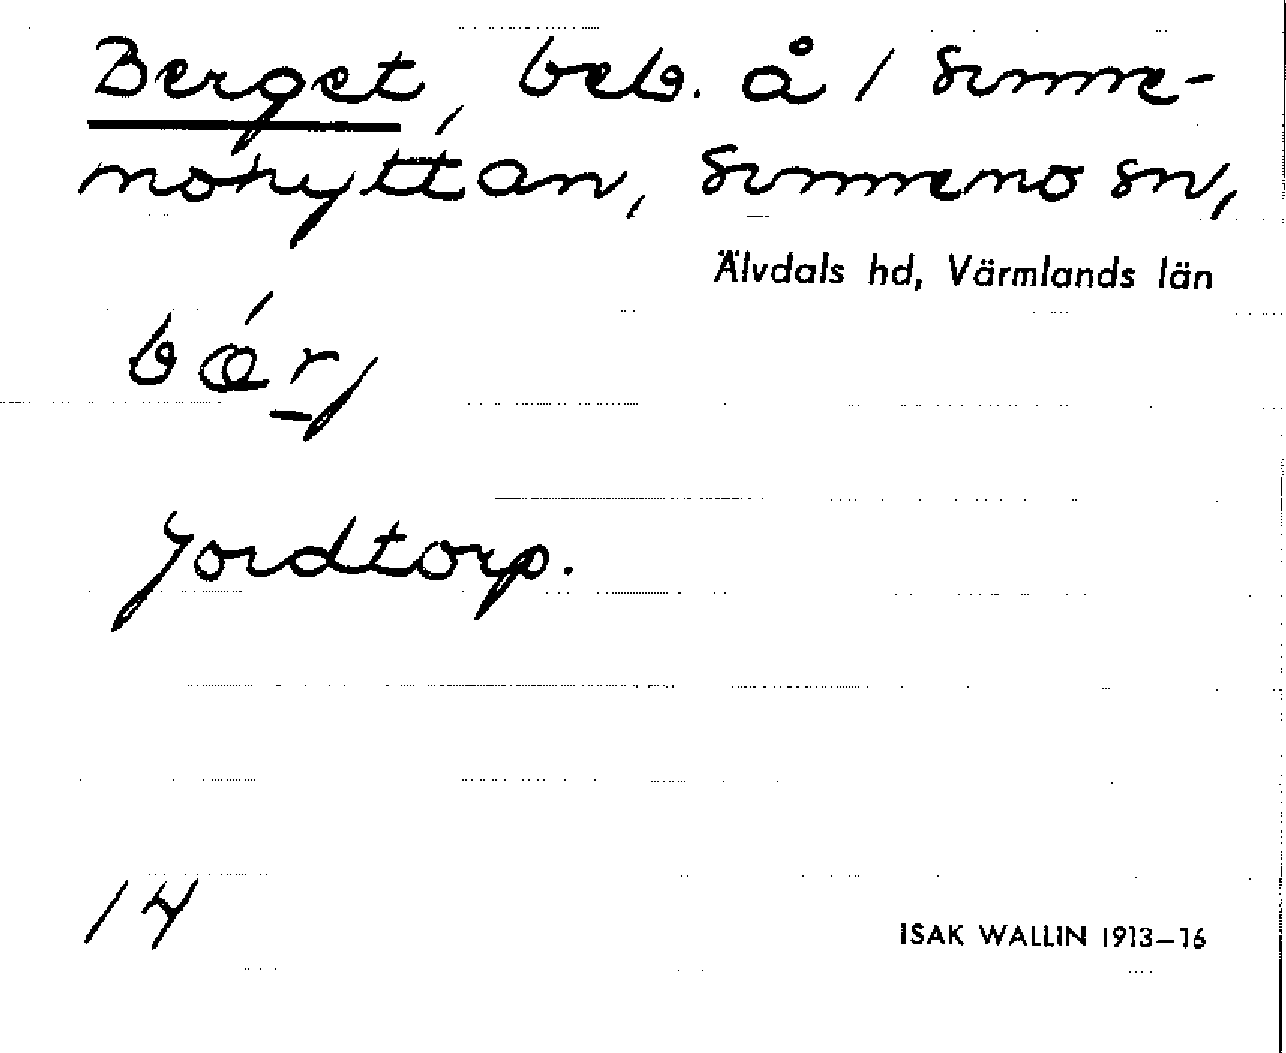 Berget, beb. å 1 Sunne-
mohyttan, Sunnemo sn,
Älvdals hd, Värmlands län
bœ́rj
Jordtorp.
14
ISAK WALLIN 1913–16